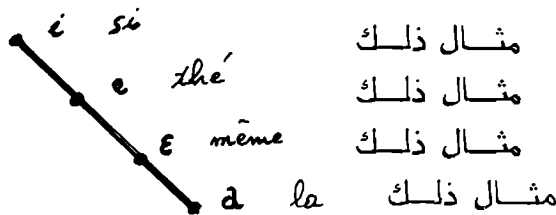 i si مثال ذلك
e thé مثال ذلك
ɛ même مثال ذلك
a la مثال ذلك